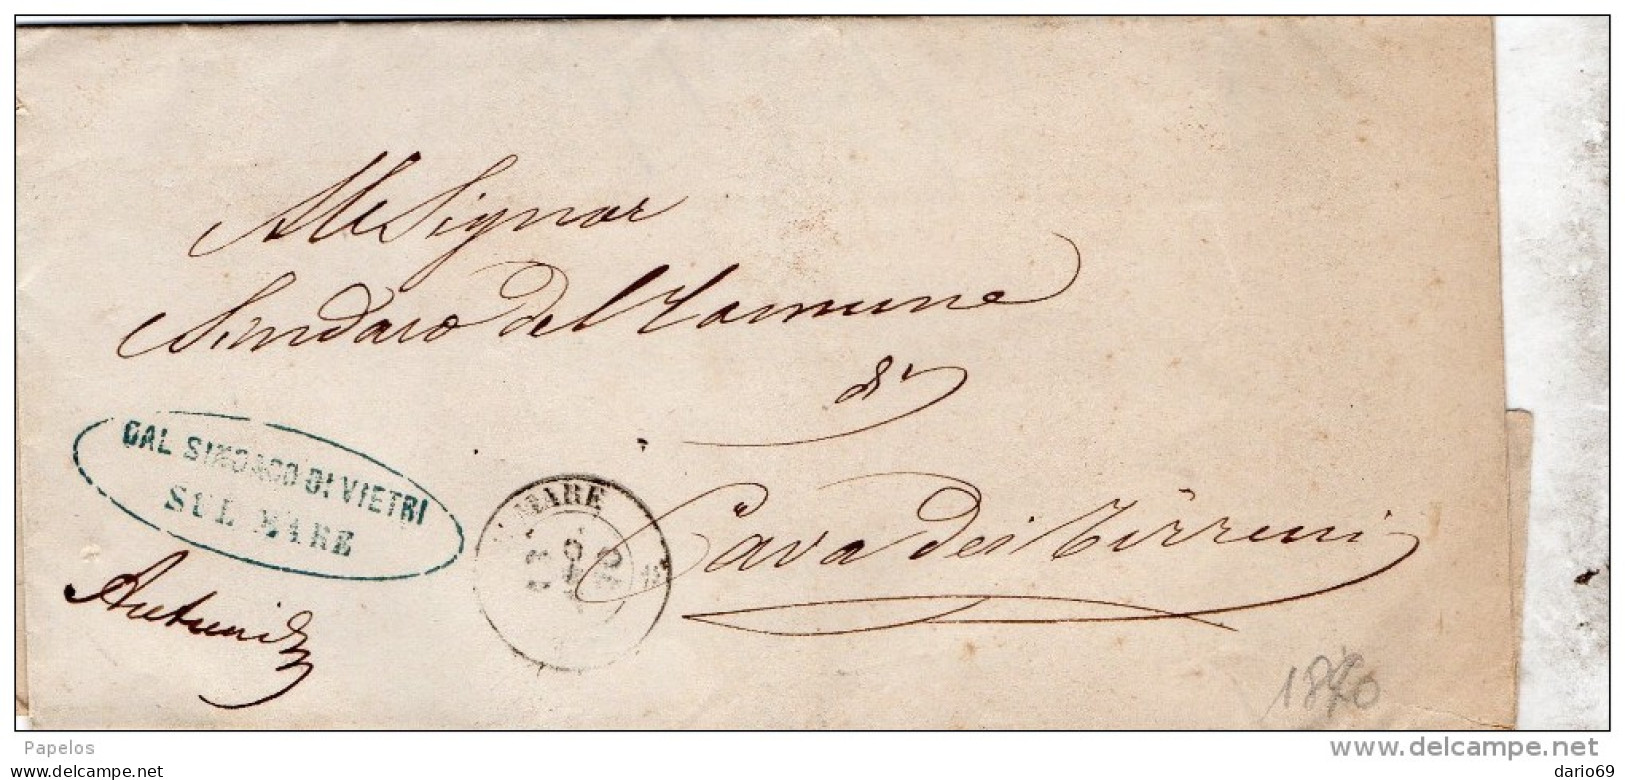 Al Signor
Sindaco del Comune
di
Cava dei Tirreni
DAL SINDACO DI VIETRI
SUL MARE
MARE
1870
Papelos
www.delcampe.net
dario69